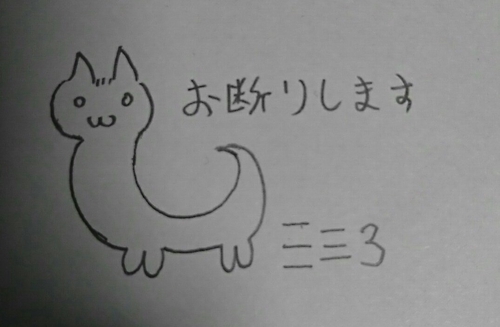 お断りします
三三3